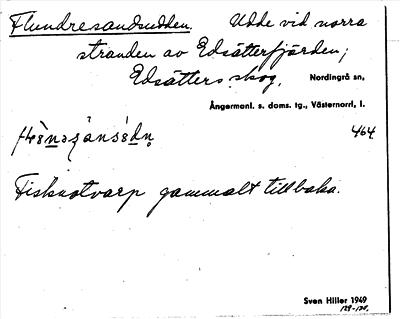 Flundresandsudden. Udde vid norra
stranden av Edsätterfjärden;
Edsätters skog. Nordingrå sn,
Ångermanl. s. doms. tg., Västernorrl. l.
464
Fisknotvarp gammalt tillbaka.
Sven Hiller 1949